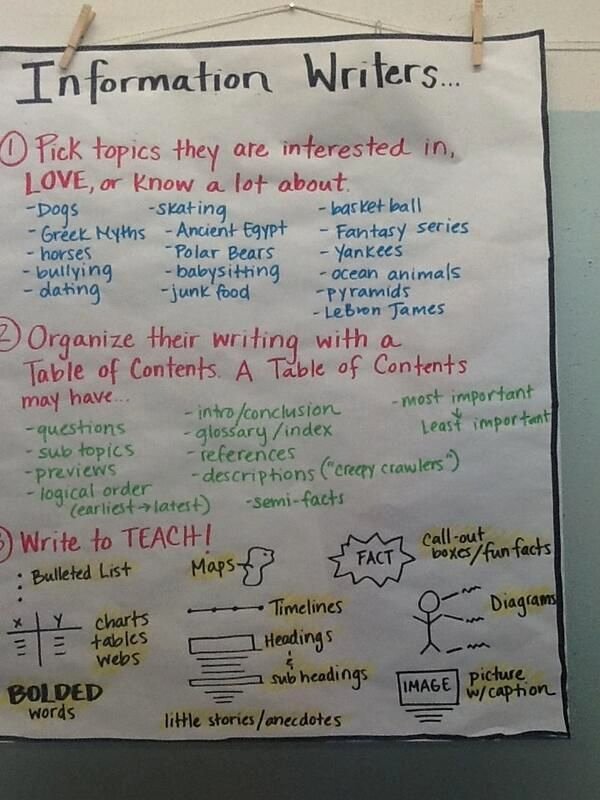 Information Writers...
① Pick topics they are interested in,
LOVE, or know a lot about.
-Dogs
- Greek Myths
- horses
- bullying
- dating
-skating
- Ancient Egypt
-Polar Bears
- babysitting
-junk food
- basketball
- Fantasy series
- Yankees
- ocean animals
-pyramids
- LeBron James
② Organize their writing with a
Table of Contents. A Table of Contents
may have...
-questions
- sub topics
-previews
- logical order
(earliest→latest)
- intro/conclusion
- glossary/index
- references
- descriptions ("creepy crawlers")
-semi-facts
-most important
↓
Least important
3 Write to TEACH!
Bulleted List
Maps-
FACT
call-out
boxes/fun facts
X Y
charts
tables
webs
Timelines
Headings
&
sub headings
Diagrams
BOLDED
words
little stories/anecdotes
IMAGE
picture
w/caption